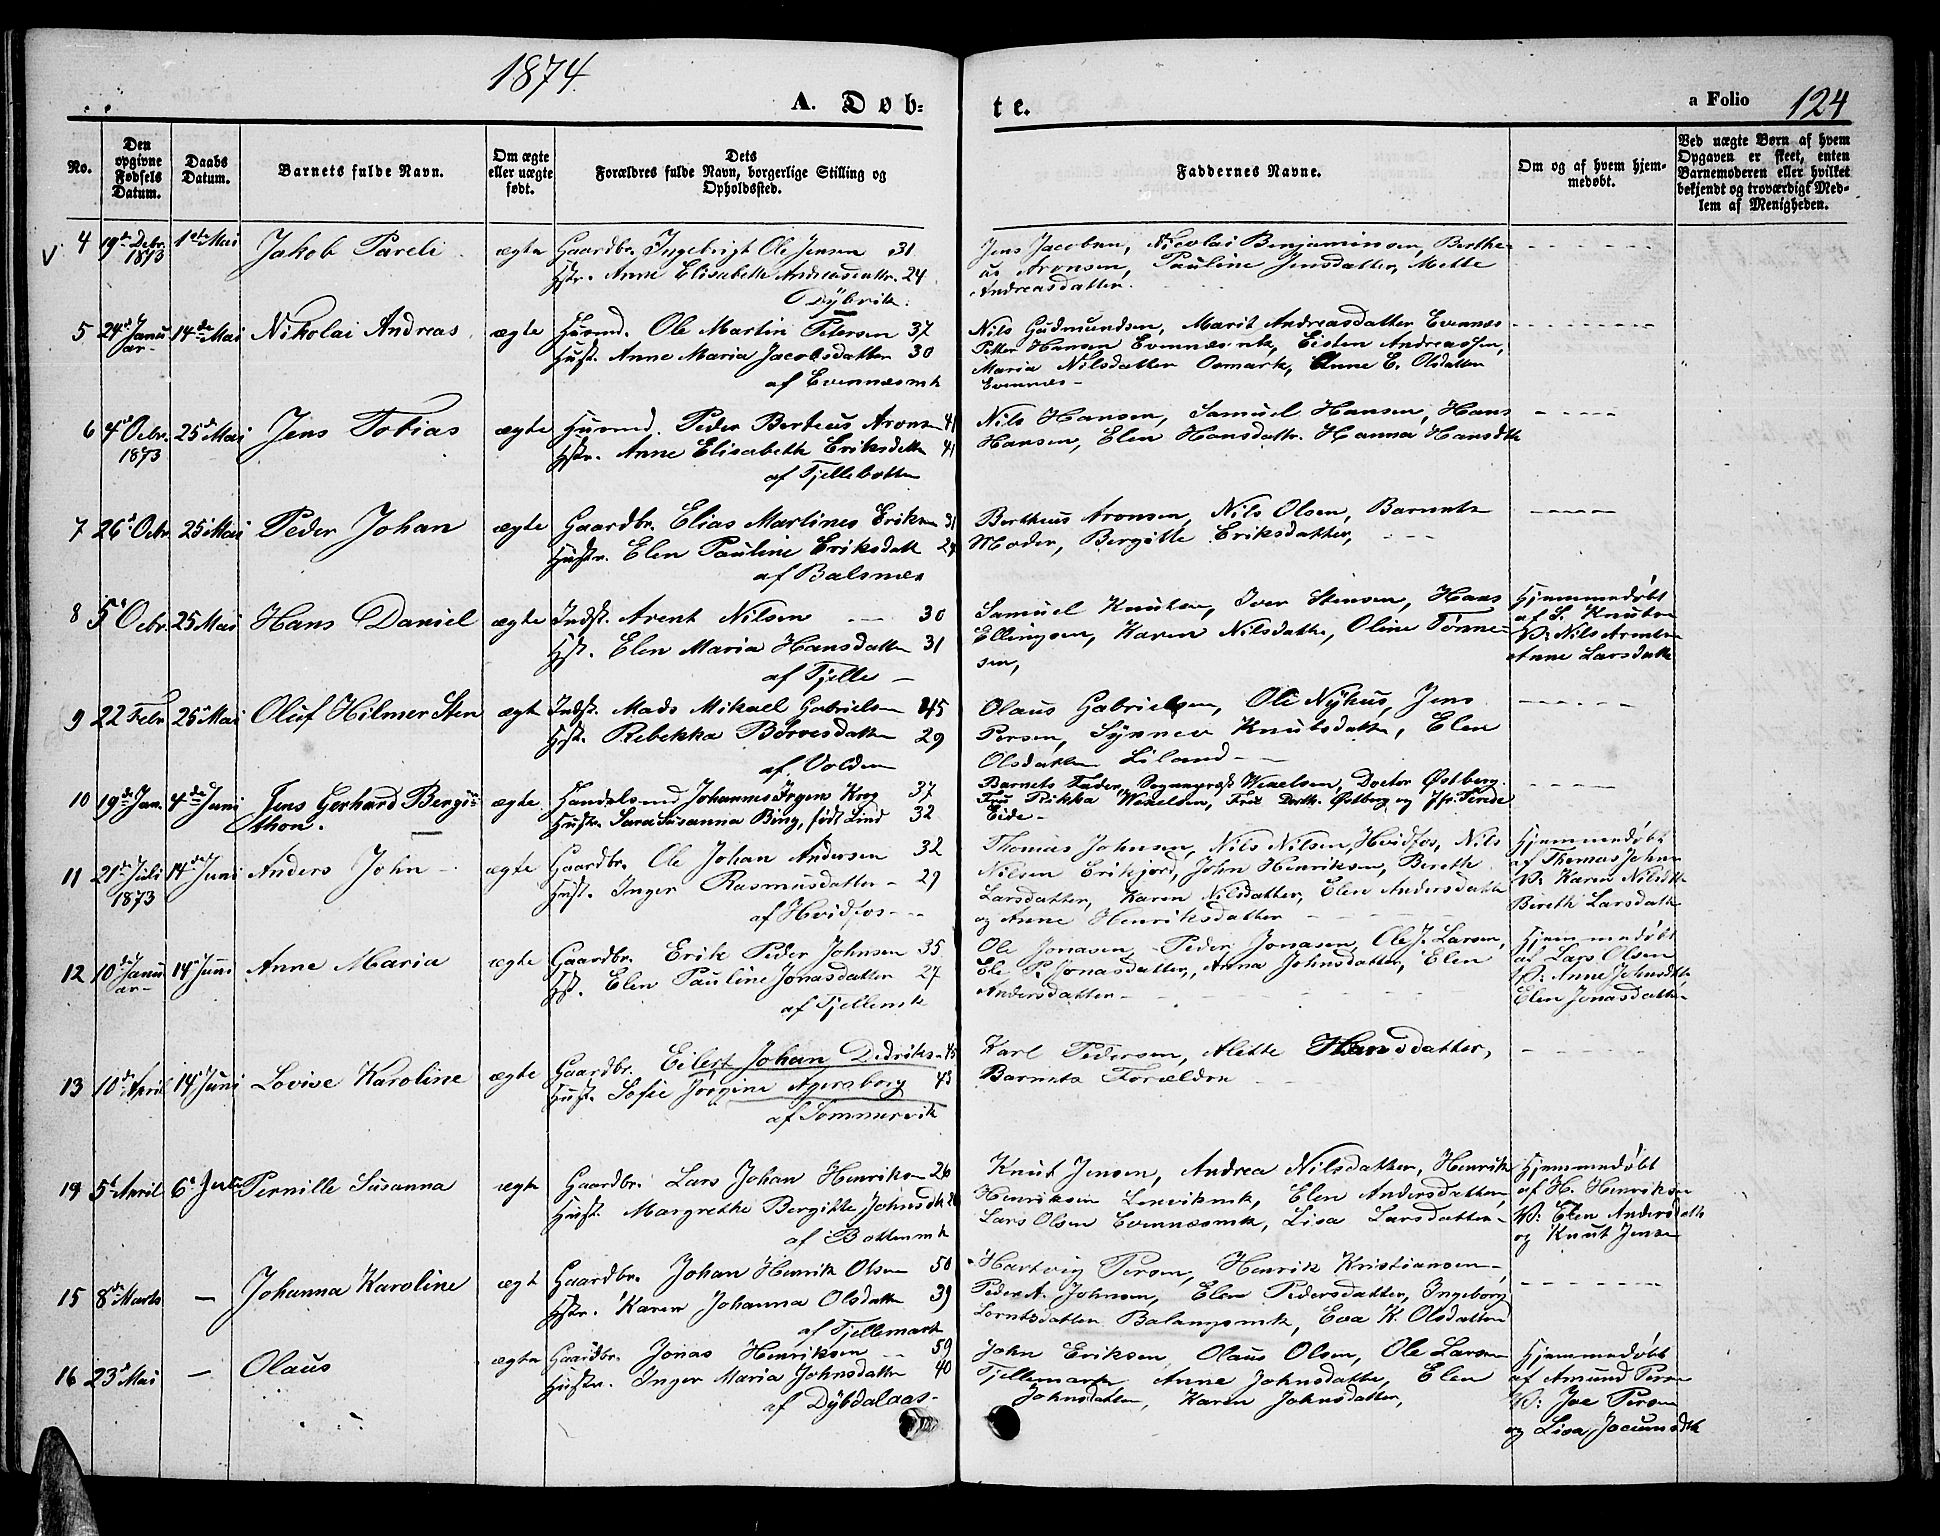 1874.
A. Døb-
te.
a Folio 124
No.
Den opgivne Fødsels Datum.
Daabs Datum.
Barnets fulde Navn.
Om ægte eller uægte født.
Dets Forældres fulde Navn, borgerlige Stilling og Opholdssted.
Faddernes Navne.
Om og af hvem hjemmedøbt.
Ved uægte Børn af hvem Opgaven er skeet, enten Barnemoderen eller hvilket bekjendt og troværdigt Medlem af Menigheden.
4 19de Debr. 1873 1ste Mai Jakob Pareli ægte Gaardbr. Ingebrigt Ole Jensen 31
Hstr. Anne Elisabeth Andreasdattr. 24
Dybvik.
Jens Jacobsen, Nicolai Benjaminsen, Berthe-
us Aronsen, Pauline Jensdatter, Mette
Andreasdatter.
5 24de Januar 14de Mai Nikolai Andreas ægte Husmd. Ole Martin Petersen 37
Hust. Anne Maria Jacobsdatter 30
af Evennæsmk
Nils Gudmundsen, Marit Andreasdatter Evennæs
Petter Hansen Evennæsmk, Eisten Andreassen,
Maria Nilsdatter Osmark, Anne E. Olsdatter
Evennæs
6 4de Octbr. 1873 25de Mai Jens Tobias ægte Husmd. Peder Berteus Aronsen 41
Hstr. Anne Elisabeth Eriksdattr 41
af Fjellebotten
Nils Hansen, Samuel Hansen, Hans
Hansen, Elen Hansdattr. Hanna Hansdtr
7 26de Octbr 25de Mai Peder Johan ægte Gaardbr. Elias Martines Eriksen 31
Hustr. Elen Pauline Eriksdatt 24
af Balsnæs
Bertheus Aronsen, Nils Olsen, Barnets
Moder, Bergitte Eriksdatter,
8 5te Octbr. 25 Mai Hans Daniel ægte Indst. Arent Nilsen 30
Hst. Elen Maria Hansdatter 31
af Fjelle
Samuel Knutsen, Iver Stensen, Hans
Ellingsen, Karen Nilsdatter, Oline Tønne-
sen,
Hjemmedøbt
af S. Knutsen
V: Nils Arentsen
Anne Larsdatter
9 22 Febr. 25de Mai Oluf Hilmer Sten ægte Indst. Mads Mikael Gabrielsen 45
Hst. Rebekka Børresdatter 29
af Volden
Olaus Gabrielsen, Ole Nyhus, Jens
Persen, Synnev Knutsdatter, Elen
Olsdatter Liland
10 19de Jan. 4de Juni Jens Gerhard Bergi-
thon. ægte Handelsmd Johannes Irgens Krog 37
Hustr. Sara Susanna Bing, født Lind 32
Barnets Fader, Sogneprest Wexelsen, Doctor Østberg
Fru Rikka Wexelsen, Fru Dorth. Østberg og Jfr. Serede
Eide
11 21de Juli 1873 14de Juni Anders John ægte Gaardbr. Ole Johan Andersen 32
Hust. Inger Rasmusdatter 29
af Hvidfos
Thomas Johnsen, Nils Nilsen Hvidfos, Nils
Nilsen Erikjord, John Henriksen, Bereth
Larsdatter, Karen Nilsdatter, Elen Andersdatter
og Anne Henriksdatter
Hjemmedøbt
af Thomas Johnsen
V: Karen Nilsdtr
Bereth Larsdatter
12 10de Januar 14de Juni Anne Maria ægte Gaardbr. Erik Peder Johnsen 35
Hst. Elen Pauline Jonasdatter 27
af Fjellemk
Ole Jonasen, Peder Jonasen, Ole J. Larsen,
Ele P. Jonasdatter, Anna Johnsdatter, Elen
Andersdatter
Hjemmedøbt
af Lars Olsen
V: Anne Johnsdtr
Elen Jonasdatter
13 10de April 14de Juni Lovise Karoline ægte Gaardbr. Eilert Johan Dedriks. 45
Hust. Sofie Jørgine Agersborg 43
af Sommervik
Karl Pedersen, Alette Hansdatter,
Barnets Forældre
14 5te April 6te Juli Pernille Susanna ægte Gaardbr. Lars Johan Henriksen 26
Hust. Margrethe Bergitte Johnsdtr 26
af Bottenmk
Knut Jensen, Andrea Nilsdatter, Henrik
Henriksen Lenvikmk, Elen Andersdatter,
Lars Olsen Evennæsmk, Lisa Larsdatter
Hjemmedøbt
af H. Henriksen
V: Elen Andersdatter
og Knut Jensen
15 8de Marts - Johanna Karoline ægt Gaardbr. Johan Henrik Olsen 50
Hstr. Karen Johanna Olsdatter 39
af Fjellemark
Hartvig Persen, Henrik Kristiansen,
Peder A. Johnsen, Elen Pedersdatter, Ingeborg
Lorntsdatter Balangsmk, Eva K. Olsdatter
16 23de Mai - Olaus ægte Gaardbr. Jonas Henriksen 59
Hustr. Inger Maria Johnsdatter 40
af Dybdalaas
John Eriksen, Olaus Olsen, Ole Larsen
Fjellemark, Anne Johnsdatter, Elen
Johnsdatter, Karen Johnsdatter,
Hjemmedøbt
af Amund Persen
V: Joe Persen
og Lisa Jocumsdtr